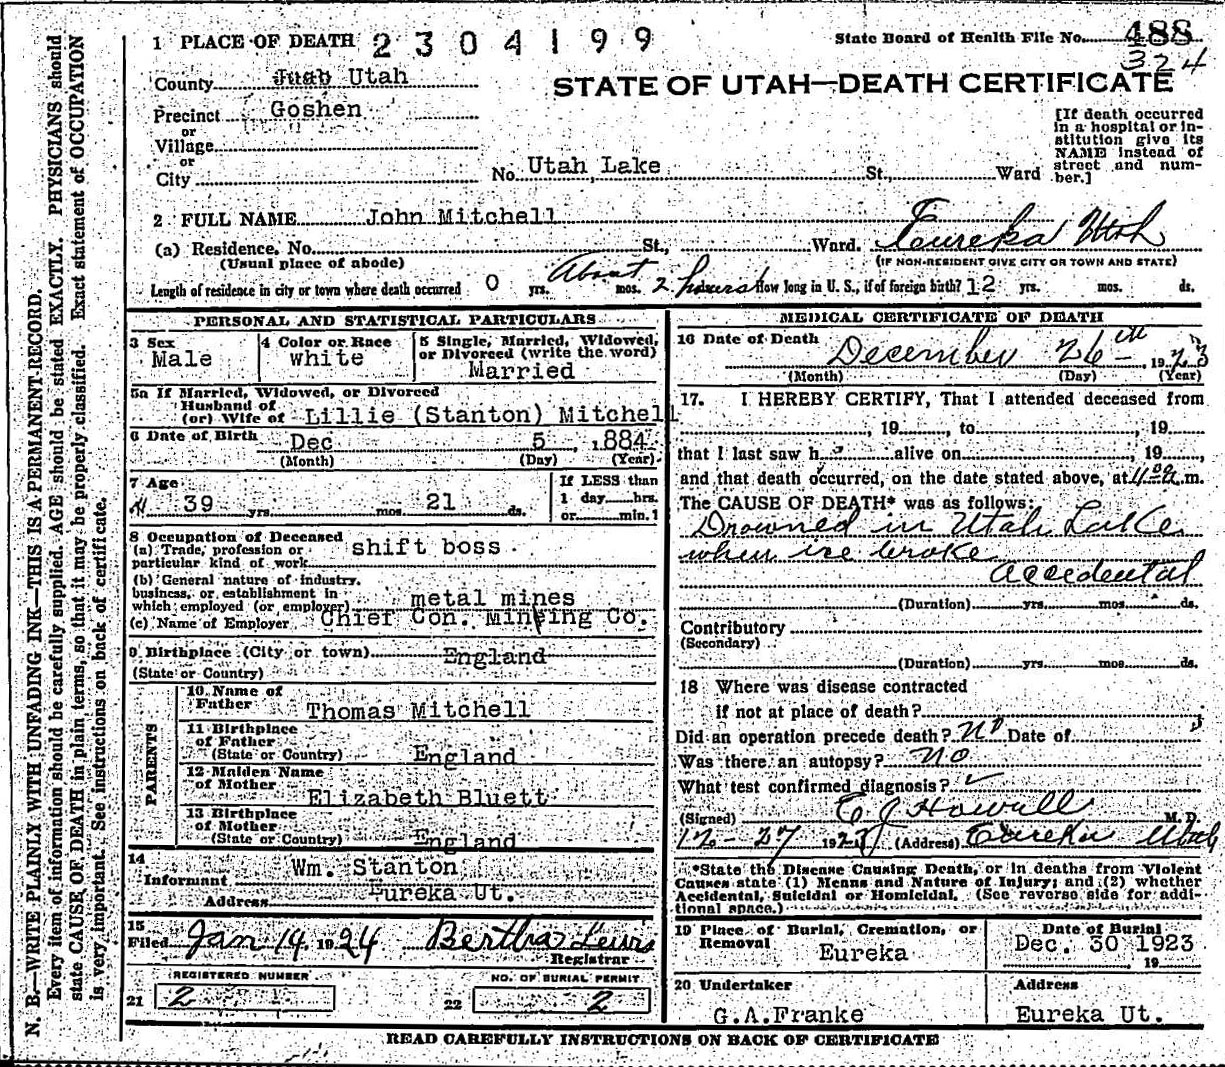 N. B.—WRITE PLAINLY WITH UNFADING INK—THIS IS A PERMANENT RECORD.
Every item of information should be carefully supplied. AGE should be stated EXACTLY. PHYSICIANS should
state CAUSE OF DEATH in plain terms, so that it may be properly classified. Exact statement of OCCUPATION
is very important. See instructions on back of certificate.
1 PLACE OF DEATH 2304199
State Board of Health File No. 488
324
County Juab Utah
STATE OF UTAH—DEATH CERTIFICATE
Precinct Goshen
or
Village
or
City
No. Utah Lake St., Ward
[If death occurred
in a hospital or in-
stitution give its
NAME instead of
street and num-
ber.]
2 FULL NAME John Mitchell
(a) Residence, No. St., Ward. Eureka Utah
(Usual place of abode) (IF NON-RESIDENT GIVE CITY OR TOWN AND STATE)
Length of residence in city or town where death occurred 0 yrs. About mos. 2 hours How long in U. S., if of foreign birth? 12 yrs. mos. ds.
PERSONAL AND STATISTICAL PARTICULARS
3 Sex
Male
4 Color or Race
white
5 Single, Married, Widowed,
or Divorced (write the word)
Married
5a If Married, Widowed, or Divorced
Husband of
(or) Wife of Lillie (Stanton) Mitchell
6 Date of Birth Dec 5 , 884
(Month) (Day) (Year)
7 Age
39 yrs. mos. 21 ds.
If LESS than
1 day hrs.
or min.
8 Occupation of Deceased
(a) Trade, profession or
particular kind of work shift boss
(b) General nature of industry.
business, or establishment in
which employed (or employer) metal mines
(c) Name of Employer Chief Con. Mineing Co.
9 Birthplace (City or town) England
(State or Country)
PARENTS
10 Name of
Father Thomas Mitchell
11 Birthplace
of Father
(State or Country) England
12 Maiden Name
of Mother Elizabeth Bluett
13 Birthplace
of Mother
(State or Country) England
14
Informant Wm. Stanton
Address Eureka Ut.
15
Filed Jan 14, 1924 Bertha Lewis
Registrar
REGISTERED NUMBER
21 2
NO. OF BURIAL PERMIT
22 2
MEDICAL CERTIFICATE OF DEATH
16 Date of Death
December 26th, 1923
(Month) (Day) (Year)
17. I HEREBY CERTIFY, That I attended deceased from
, 19 , to , 19
that I last saw h alive on , 19 ,
and that death occurred, on the date stated above, at m.
The CAUSE OF DEATH* was as follows:
Drowned in Utah Lake
when ice broke
accedental
(Duration) yrs. mos. ds.
Contributory
(Secondary)
(Duration) yrs. mos. ds.
18 Where was disease contracted
if not at place of death?
Did an operation precede death? No Date of
Was there an autopsy? No
What test confirmed diagnosis? ✓
(Signed) E J Howell M. D.
12-27 1923 (Address) Eureka Utah
*State the Disease Causing Death, or in deaths from Violent
Causes state (1) Means and Nature of Injury; and (2) whether
Accidental, Suicidal or Homicidal. (See reverse side for addi-
tional space.)
19 Place of Burial, Cremation, or
Removal
Eureka
Date of Burial
Dec. 30 1923
, 19
20 Undertaker
G.A.Franke
Address
Eureka Ut.
READ CAREFULLY INSTRUCTIONS ON BACK OF CERTIFICATE